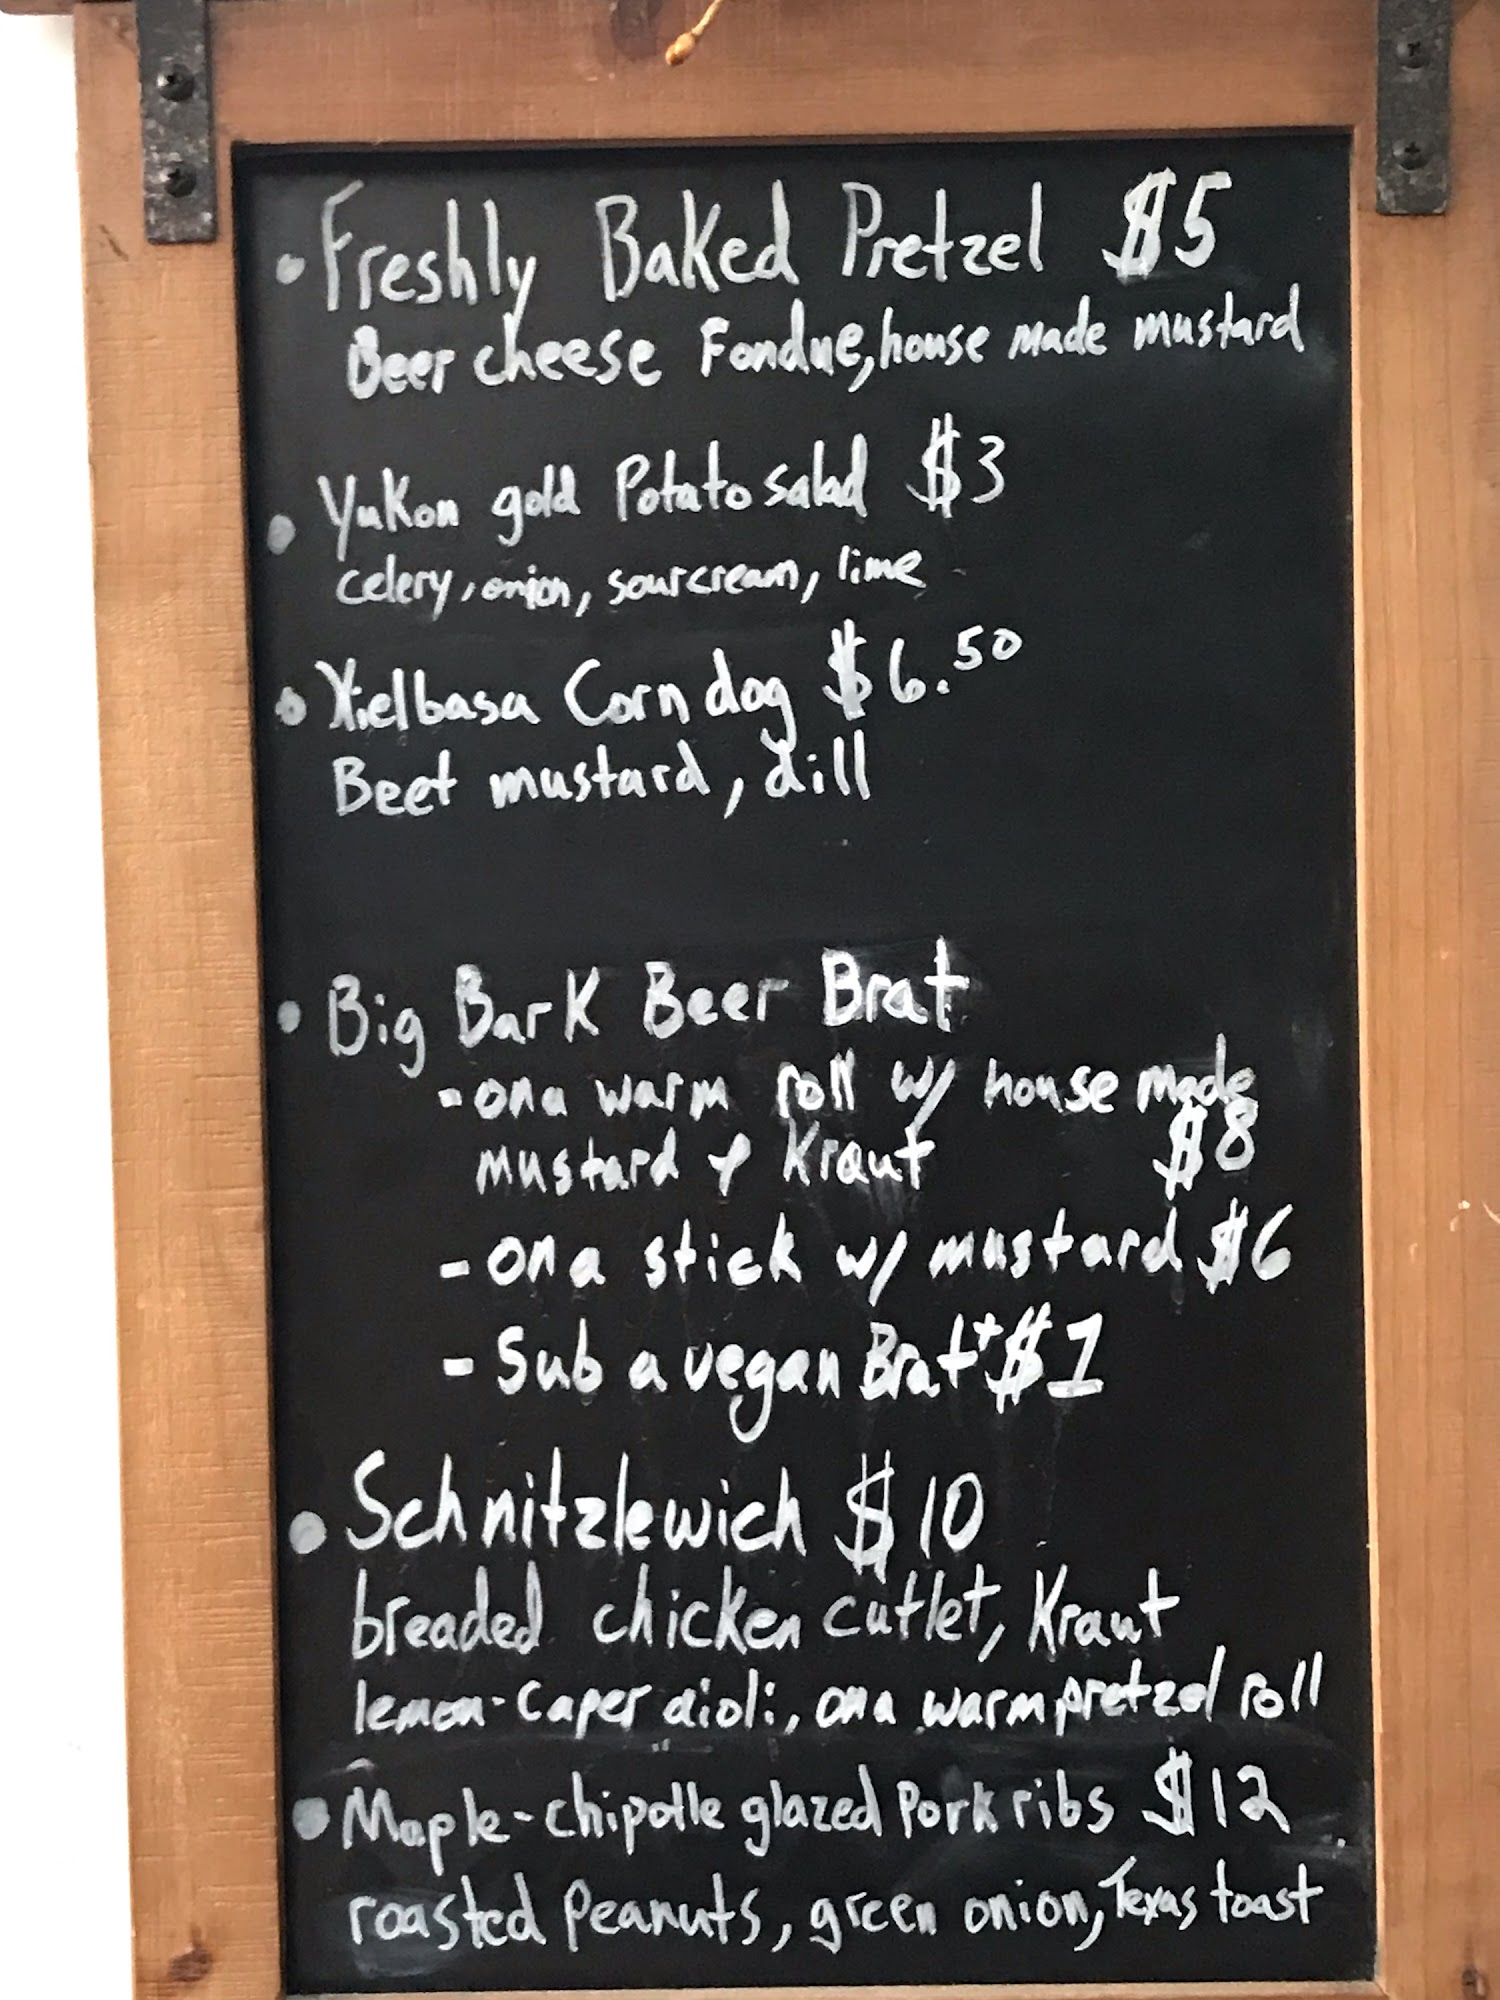 • Freshly Baked Pretzel $5
Beer cheese Fondue, house made mustard
• Yukon gold Potato salad $3
celery, onion, sour cream, lime
• Kielbasa Corn dog $6.50
Beet mustard, dill
• Big Bark Beer Brat
- on a warm roll w/ house made
mustard + Kraut $8
- on a stick w/ mustard $6
- Sub a vegan Brat +$1
• Schnitzlewich $10
breaded chicken cutlet, Kraut
lemon-caper aioli, on a warm pretzel roll
• Maple-chipotle glazed Pork ribs $12
roasted Peanuts, green onion, Texas toast